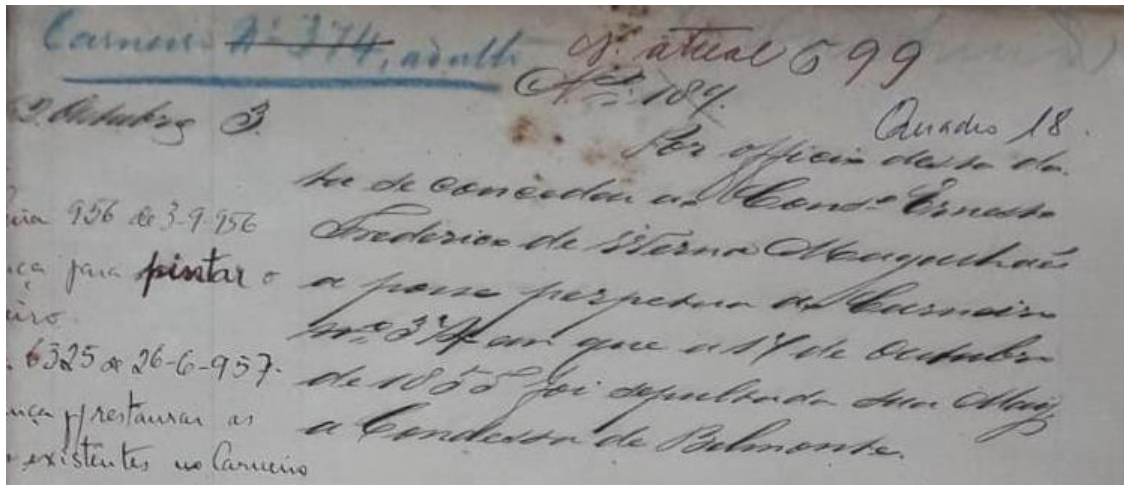 Carneiro Nº 374, adulto
Nº atual 699
Nº 184.
Quadro 18.
Outubro 3.
Por officio desta da
ta se concedeu ao Consº Ernesto
Frederico de Verna Magalhães
a posse perpetua do Carneiro
nº 374 em que a 17 de Outubro
de 1855 foi sepultada sua Mãy,
a Condessa de Belmonte.
956 de 3-9-956
ça para pintar o
iro.
6325 de 26-6-957.
nça p/ restaurar as
existentes no Carneiro